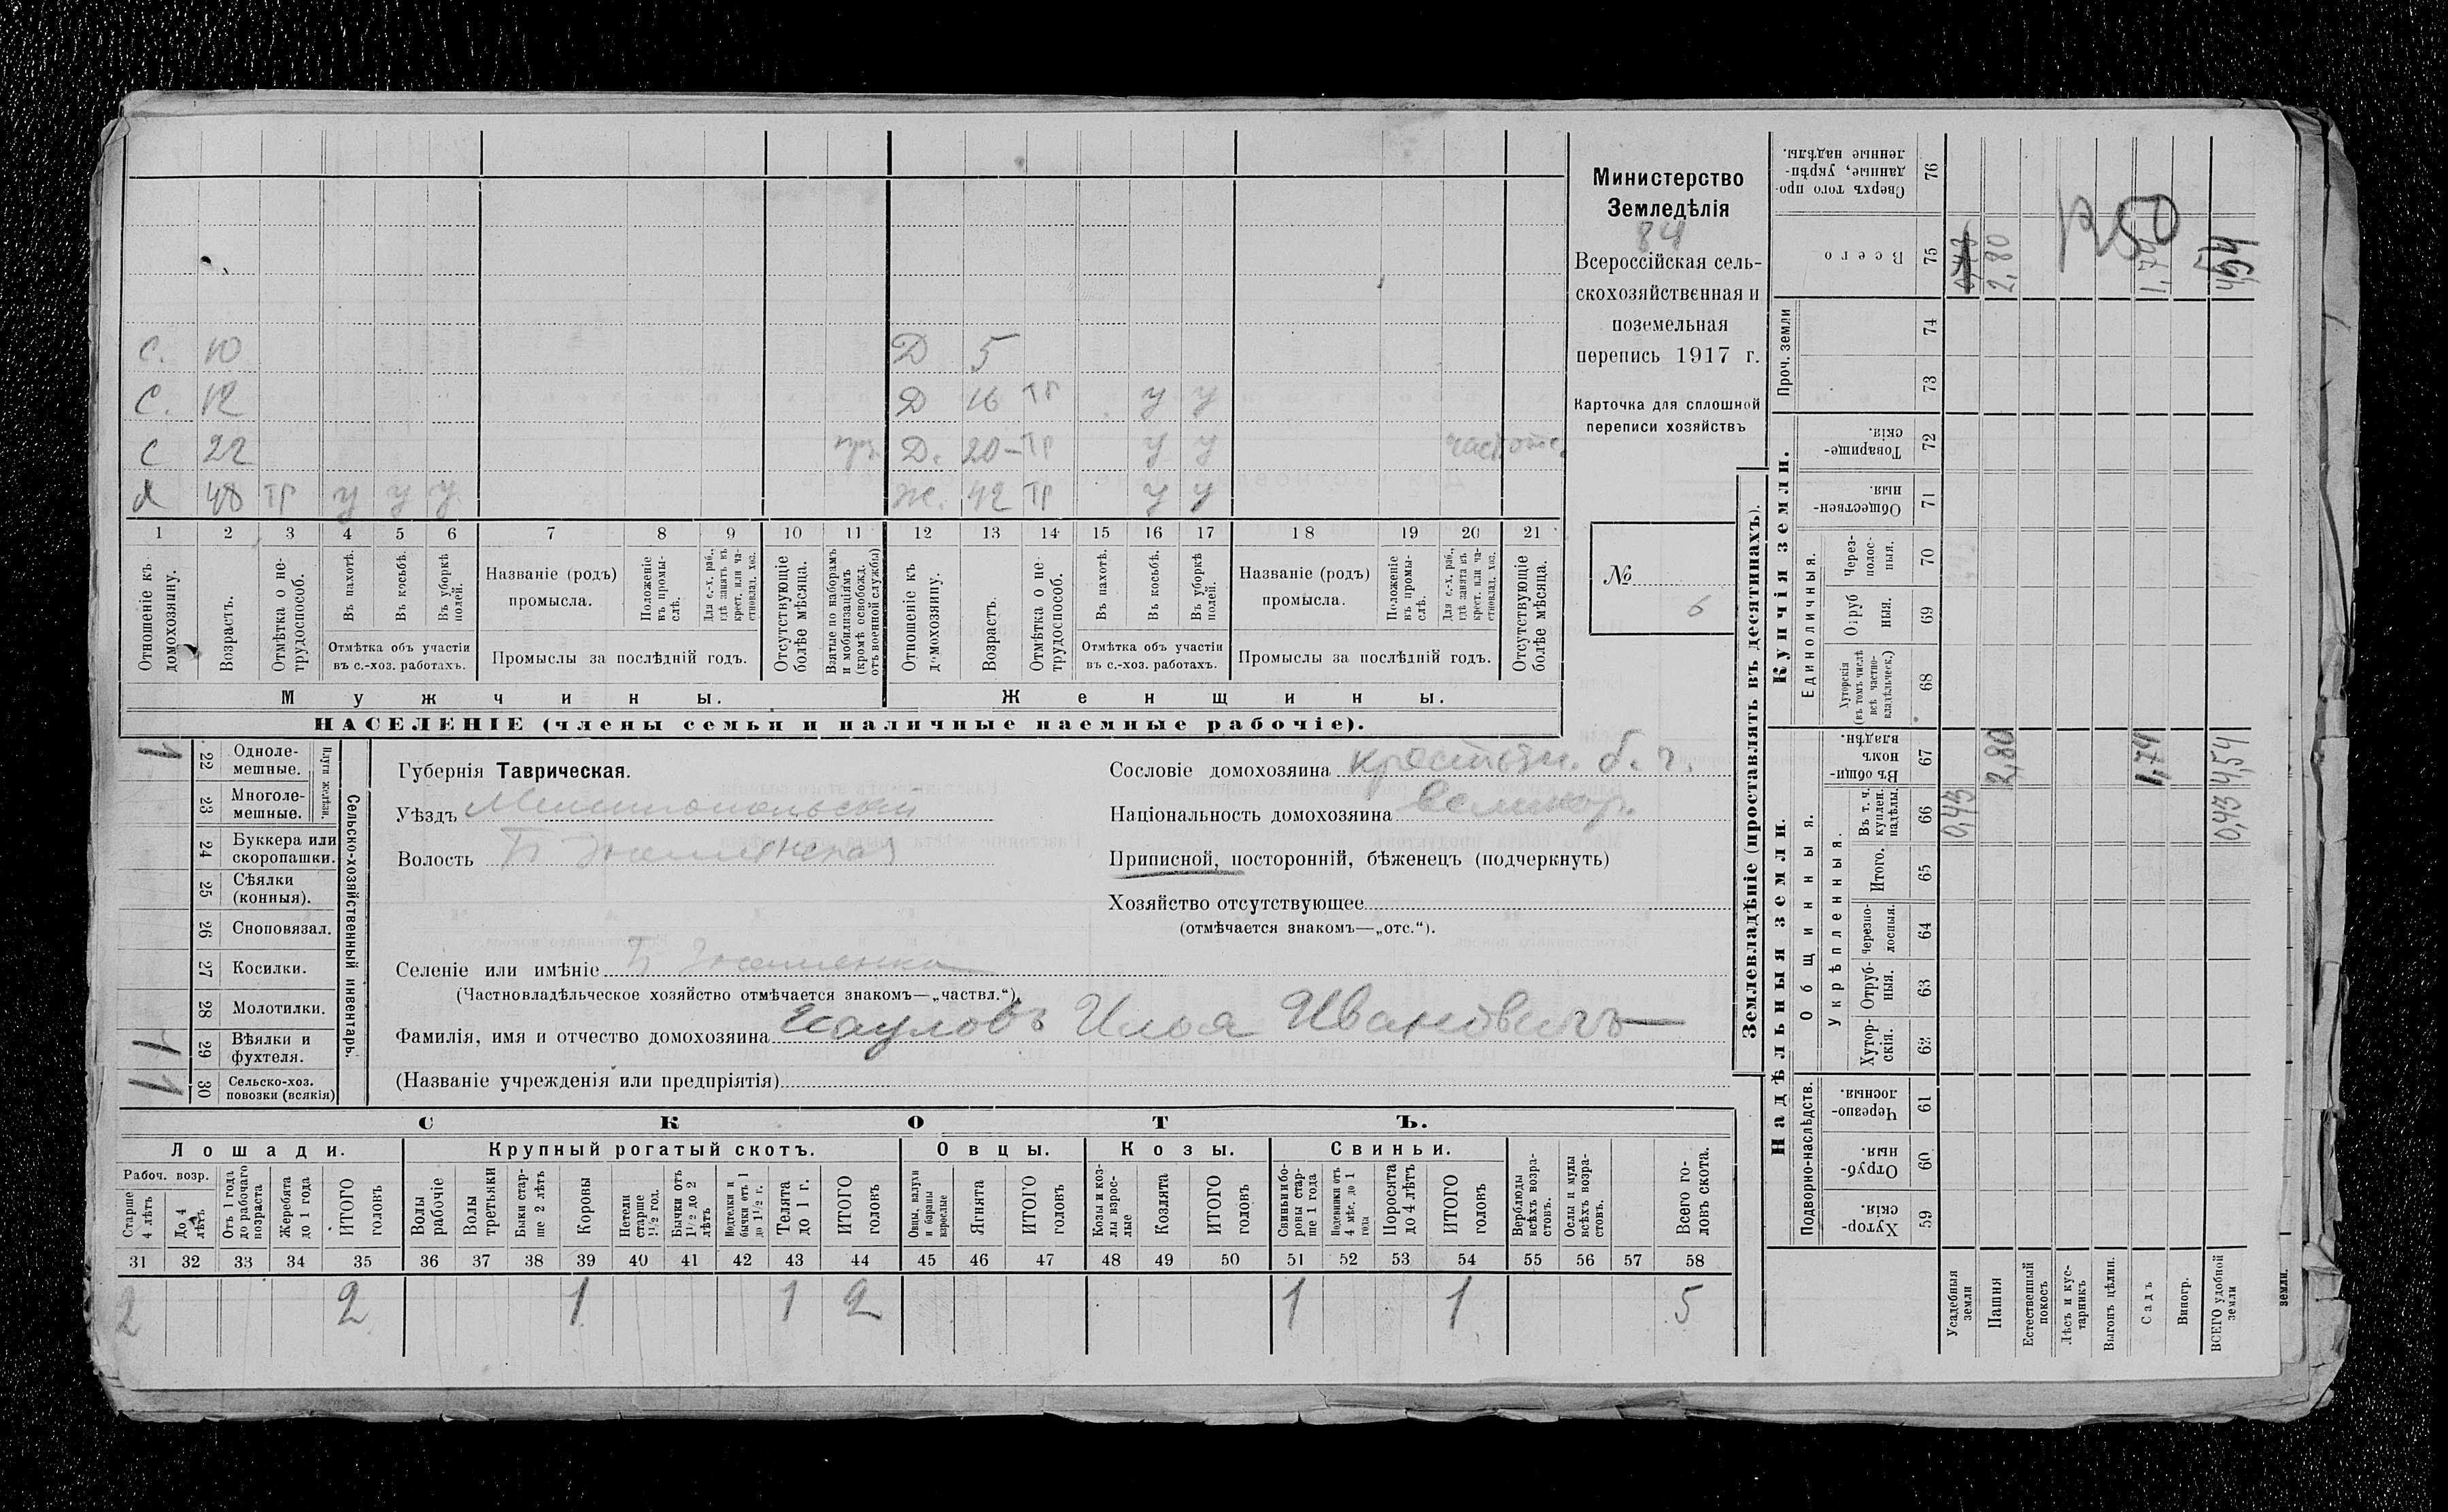 С. 10 Д 5
С. 12 Д 16 тр у у
С 22 Д. 20 тр у у
48 тр у у у Ж. 42 тр у у
1 2 3 4 5 6 7 8 9 10 11 12 13 14 15 16 17 18 19 20 21
Отношеніе къ домохозяину.
Возрастъ.
Отмѣтка о нетрудоспособ.
Въ пахотѣ.
Въ косьбѣ.
Въ уборкѣ полей.
Отмѣтка объ участіи въ с.-хоз. работахъ.
Названіе (родъ) промысла.
Положеніе въ промыслѣ.
Для с.-х. раб., гдѣ занятъ въ крест. или частновлад. хоз.
Промыслы за послѣдній годъ.
Отсутствующіе болѣе мѣсяца.
Взятые по наборамъ и мобилизаціямъ (кромѣ освобожд. отъ военной службы)
Отношеніе къ домохозяину.
Возрастъ.
Отмѣтка о нетрудоспособ.
Въ пахотѣ.
Въ косьбѣ.
Въ уборкѣ полей.
Отмѣтка объ участіи въ с.-хоз. работахъ.
Названіе (родъ) промысла.
Положеніе въ промыслѣ.
Для с.-х. раб., гдѣ занята въ крест. или частновлад. хоз.
Промыслы за послѣдній годъ.
Отсутствующіе болѣе мѣсяца.
Мужчины. Женщины.
НАСЕЛЕНІЕ (члены семьи и наличные наемные рабочіе).
Министерство
Земледѣлія
84
Всероссійская сель-
скохозяйственная и
поземельная
перепись 1917 г.
Карточка для сплошной
переписи хозяйствъ
№
6
1 22 Одноле-
мешные.
23 Многоле-
мешные.
Плуги желѣзн.
24 Буккера или
скоропашки.
25 Сѣялки
(конныя).
26 Сноповязал.
27 Косилки.
28 Молотилки.
29 Вѣялки и
фухтеля.
30 Сельско-хоз.
повозки (всякія)
Сельско-хозяйственный инвентарь.
Губернія Таврическая.
Уѣздъ Мелитопольскій
Волость Б Знаменская
Сословіе домохозяина крестьян. б. г.
Національность домохозяина великор.
Приписной, посторонній, бѣженецъ (подчеркнуть)
Хозяйство отсутствующее
(отмѣчается знакомъ—„отс.“).
Селеніе или имѣніе Б Знаменка
(Частновладѣльческое хозяйство отмѣчается знакомъ—„частвл.“).
Фамилія, имя и отчество домохозяина Есауловъ Илья Ивановичъ
(Названіе учрежденія или предпріятія)
СКОТЪ.
Лошади. Крупный рогатый скотъ. Овцы. Козы. Свиньи.
Рабоч. возр.
Старше 4 лѣтъ
До 4 лѣтъ
Отъ 1 года до рабочаго возраста
Жеребята до 1 года
ИТОГО головъ
Волы рабочіе
Волы третьяки
Быки старше 2 лѣтъ
Коровы
Нетели старше 1½ год.
Бычки отъ 1½ до 2 лѣтъ
Подтелки и бычки отъ 1 до 1½ г.
Телята до 1 г.
ИТОГО головъ
Овцы, валухи и бараны взрослые
Ягнята
ИТОГО головъ
Козы и козлы взрослые
Козлята
ИТОГО головъ
Свиньи и боровы старше 1 года
Подсвинки отъ 4 мѣс. до 1 года
Поросята до 4 лѣтъ
ИТОГО головъ
Верблюды всѣхъ возрастовъ.
Ослы и мулы всѣхъ возрастовъ.
Всего головъ скота.
31 32 33 34 35 36 37 38 39 40 41 42 43 44 45 46 47 48 49 50 51 52 53 54 55 56 57 58
2 2 1 1 2 1 1 5
Землевладѣніе (проставлять въ десятинахъ).
Сверхъ того проданные, укрѣпленные надѣлы. 76
Всего 75 2,80 1,74 4,54
Проч. земли 74 73
Купчія земли.
Товарищескія. 72
Общественныя. 71
Единоличныя.
Черезполосныя. 70
Отрубныя. 69
Хуторскія (въ томъ числѣ всѣ частновладѣльческ.) 68
Надѣльныя земли.
Общинныя.
Въ общинномъ владѣн. 67 2,80 1,74 4,54
Укрѣпленныя.
Въ т. ч. куплен. надѣлы. 66 0,43 0,43
Итого. 65
Черезполосныя. 64
Отрубныя. 63
Хуторскія. 62
Подворно-наслѣдств.
Черезполосныя. 61
Отрубныя. 60
Хуторскія. 59
Усадебныя земли
Пашня
Естественный покосъ
Лѣсъ и кустарникъ
Выгонъ цѣлин.
Садъ
Виногр.
ВСЕГО удобной земли
земли.